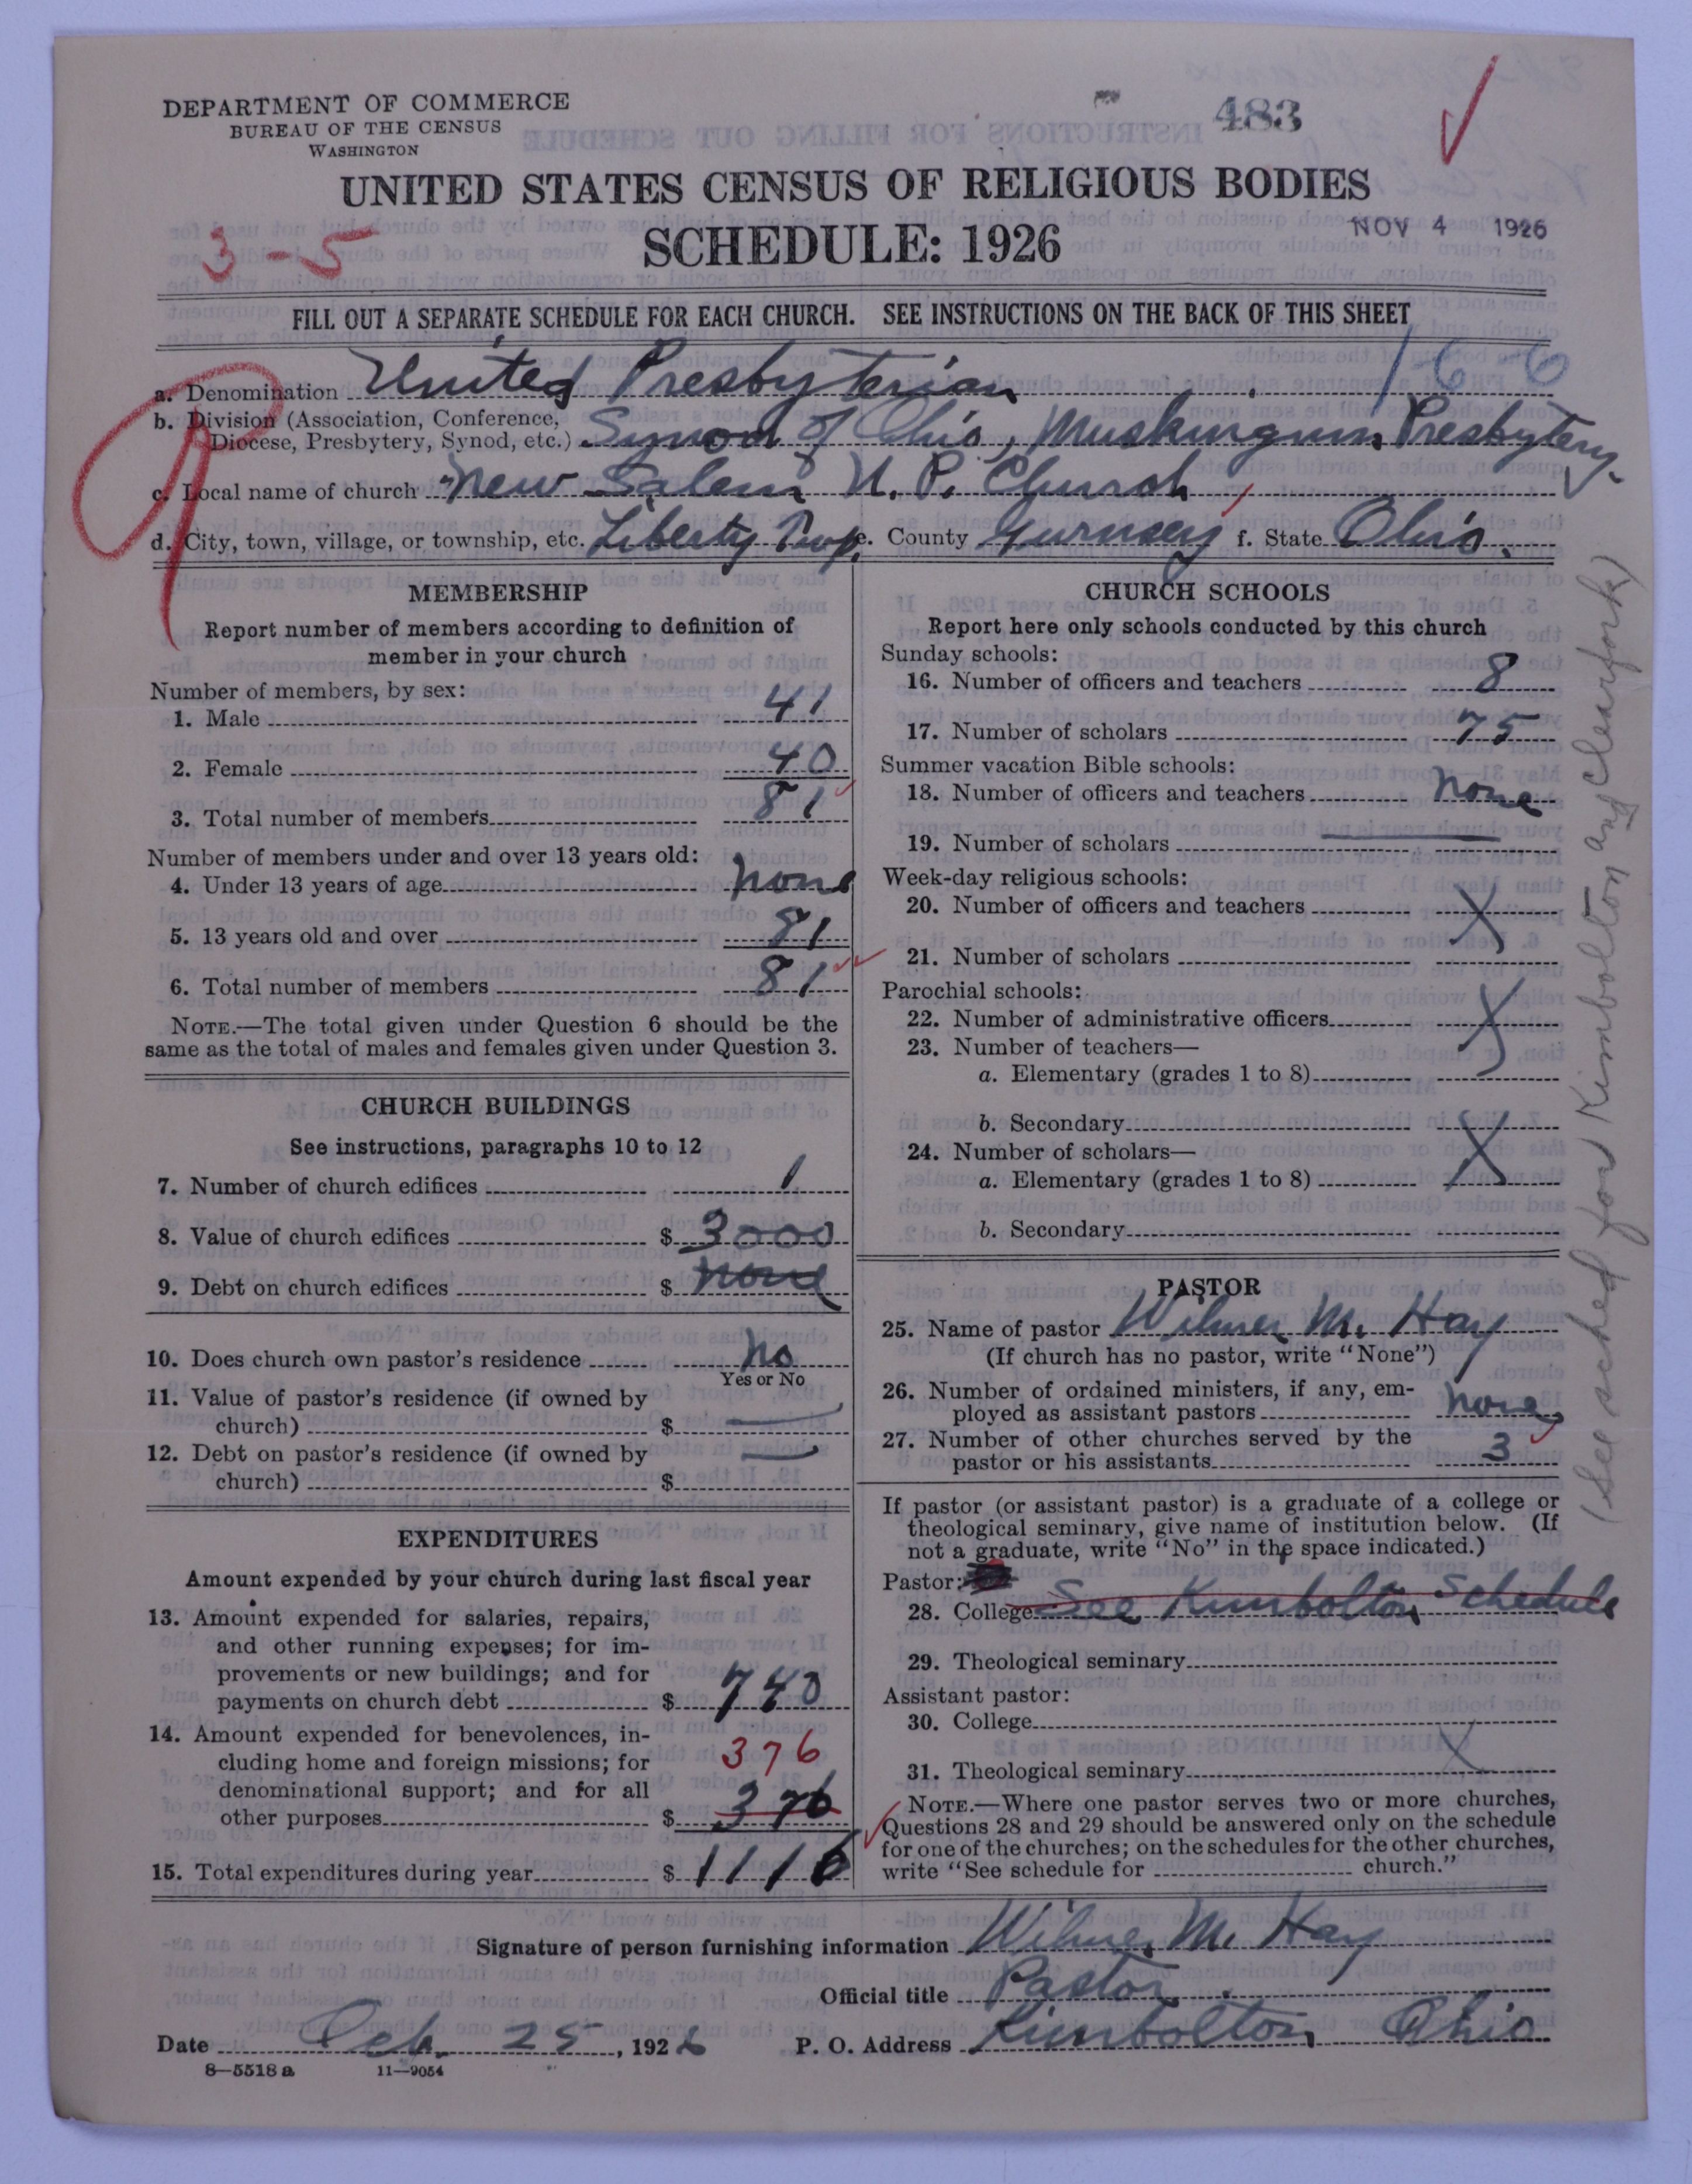 DEPARTMENT OF COMMERCE
BUREAU OF THE CENSUS
WASHINGTON
483
UNITED STATES CENSUS OF RELIGIOUS BODIES
SCHEDULE: 1926
NOV 4 1926
3-5
FILL OUT A SEPARATE SCHEDULE FOR EACH CHURCH. SEE INSTRUCTIONS ON THE BACK OF THIS SHEET
a. Denomination United Presbyterian 166
b. Division (Association, Conference,
Diocese, Presbytery, Synod, etc.) Synod of Ohio, Muskingum Presbytery.
c. Local name of church New Salem U. P. Church
d. City, town, village, or township, etc. Liberty Twp. e. County Gurnsey f. State Ohio.
MEMBERSHIP
Report number of members according to definition of
member in your church
Number of members, by sex:
1. Male 41
2. Female 40
3. Total number of members 81
Number of members under and over 13 years old:
4. Under 13 years of age none
5. 13 years old and over 81
6. Total number of members 81
NOTE.—The total given under Question 6 should be the
same as the total of males and females given under Question 3.
CHURCH BUILDINGS
See instructions, paragraphs 10 to 12
7. Number of church edifices 1
8. Value of church edifices $ 3000
9. Debt on church edifices $ none
10. Does church own pastor's residence No
Yes or No
11. Value of pastor's residence (if owned by
church) $ —
12. Debt on pastor's residence (if owned by
church) $ —
EXPENDITURES
Amount expended by your church during last fiscal year
13. Amount expended for salaries, repairs,
and other running expenses; for im-
provements or new buildings; and for
payments on church debt $ 740
14. Amount expended for benevolences, in-
cluding home and foreign missions; for 376
denominational support; and for all
other purposes $ 376
15. Total expenditures during year $ 1116
CHURCH SCHOOLS
Report here only schools conducted by this church
Sunday schools:
16. Number of officers and teachers 8
17. Number of scholars 75
Summer vacation Bible schools:
18. Number of officers and teachers none
19. Number of scholars —
Week-day religious schools:
20. Number of officers and teachers X
21. Number of scholars
Parochial schools:
22. Number of administrative officers X
23. Number of teachers—
a. Elementary (grades 1 to 8)
b. Secondary
24. Number of scholars— X
a. Elementary (grades 1 to 8)
b. Secondary
PASTOR
25. Name of pastor Wilmer M. Hay
(If church has no pastor, write "None")
26. Number of ordained ministers, if any, em-
ployed as assistant pastors none
27. Number of other churches served by the
pastor or his assistants 3
If pastor (or assistant pastor) is a graduate of a college or
theological seminary, give name of institution below. (If
not a graduate, write "No" in the space indicated.)
Pastor:
28. College See Kimbolton Schedule
29. Theological seminary
Assistant pastor:
30. College
31. Theological seminary X
NOTE.—Where one pastor serves two or more churches,
Questions 28 and 29 should be answered only on the schedule
for one of the churches; on the schedules for the other churches,
write "See schedule for church."
(See sched for Kimbolton and Clearfork)
Signature of person furnishing information Wilmer M. Hay
Official title Pastor
Date Feb. 25, 1926 P. O. Address Kimbolton Ohio
8—5518 a 11—9054